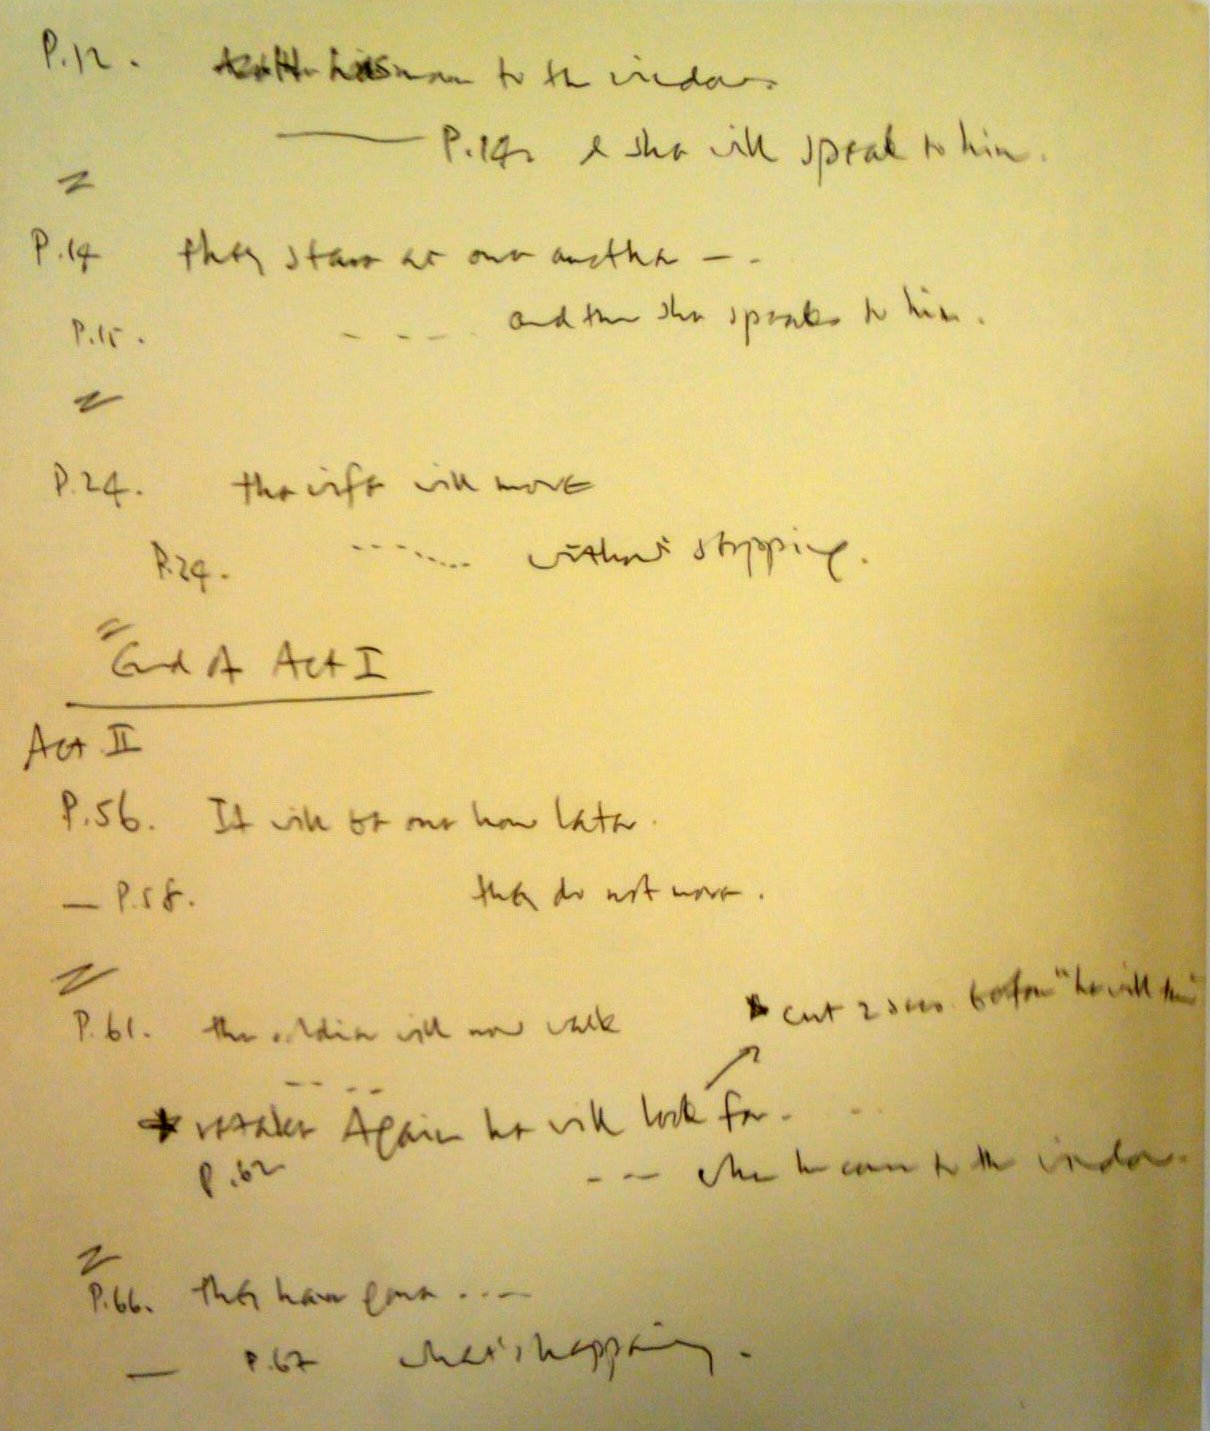 P.12. to the window
P.14. & she will speak to him.
P.14 they stare at one another - -
and then she speaks to him.
P.15. - - - -
P.24. the wife will move
..... without stopping.
P.24.
End of Act I
Act II
P.56. It will be one hour later.
— P.58. they do not move.
cut 2 secs before "he will
P.61. the soldier will now walk
- - - -
retake Again he will look for - . .
P.62 - - - when he comes to the window.
P.66. they have gone . . . —
— P.67 what's happening.